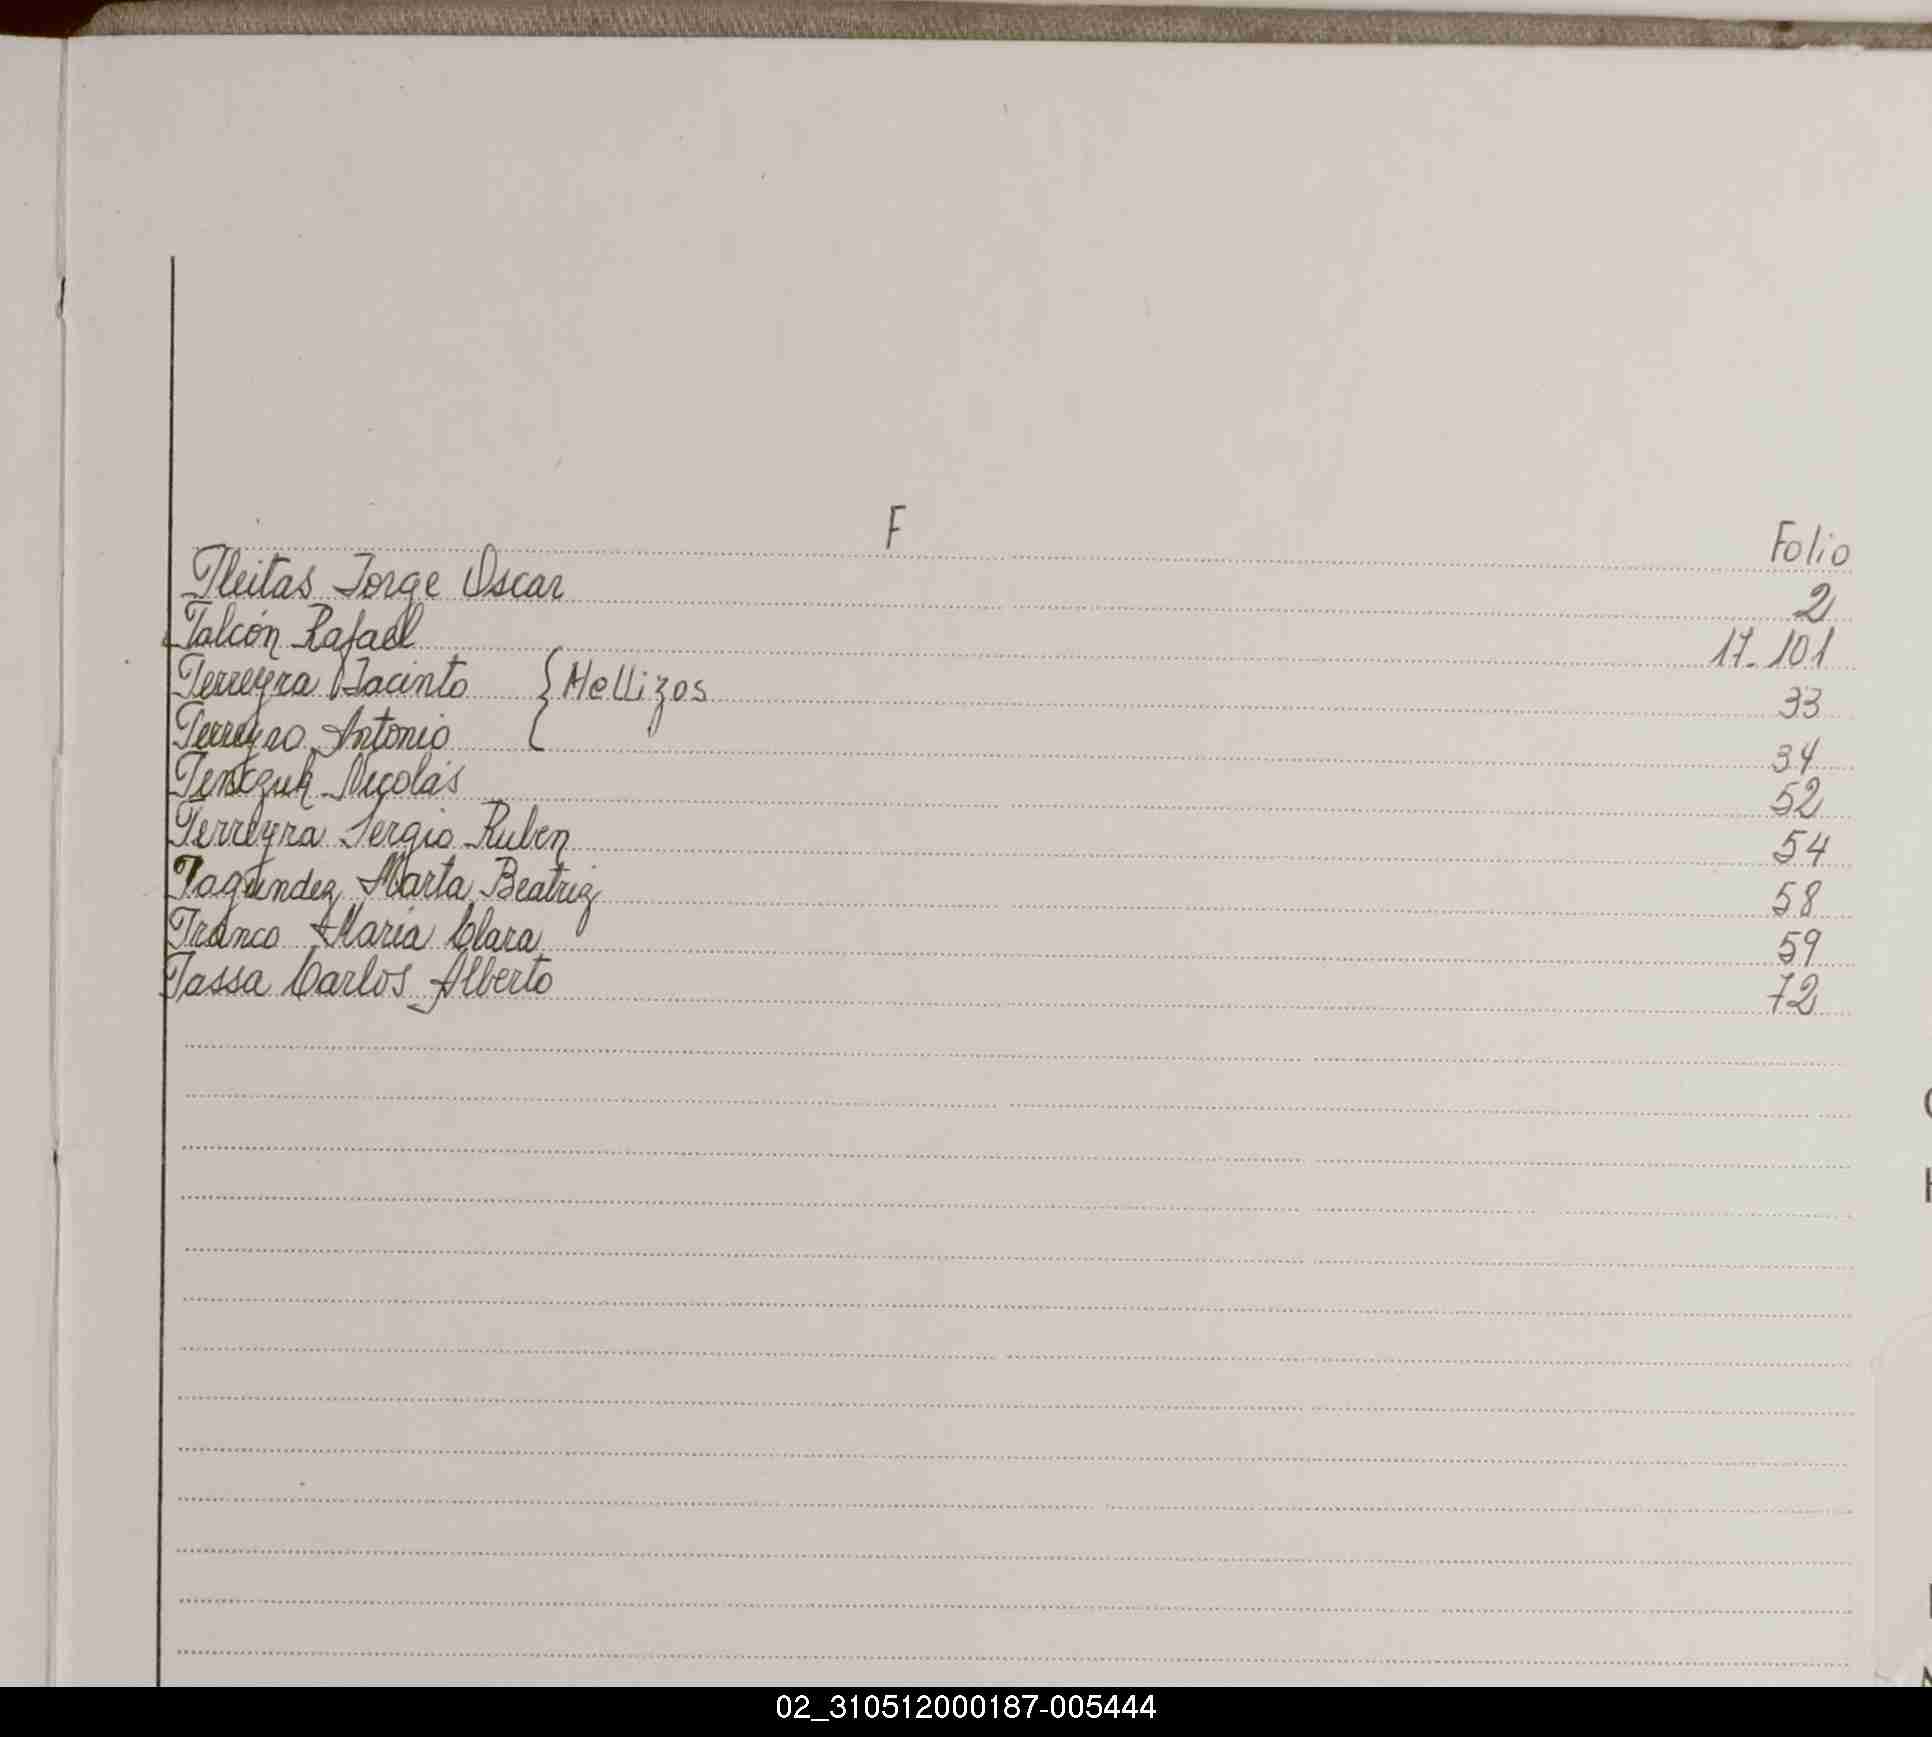 F
Folio
Fleitas Jorge Oscar 2
Falcón Rafael 17-101
Ferreyra Jacinto { Mellizos 33
Ferreyro Antonio 34
Nicolás 52
Ferreyra Sergio Ruben 54
Fagundez Marta Beatriz 58
Franco María Clara 59
Fassa Carlos Alberto 72
02_310512000187-005444